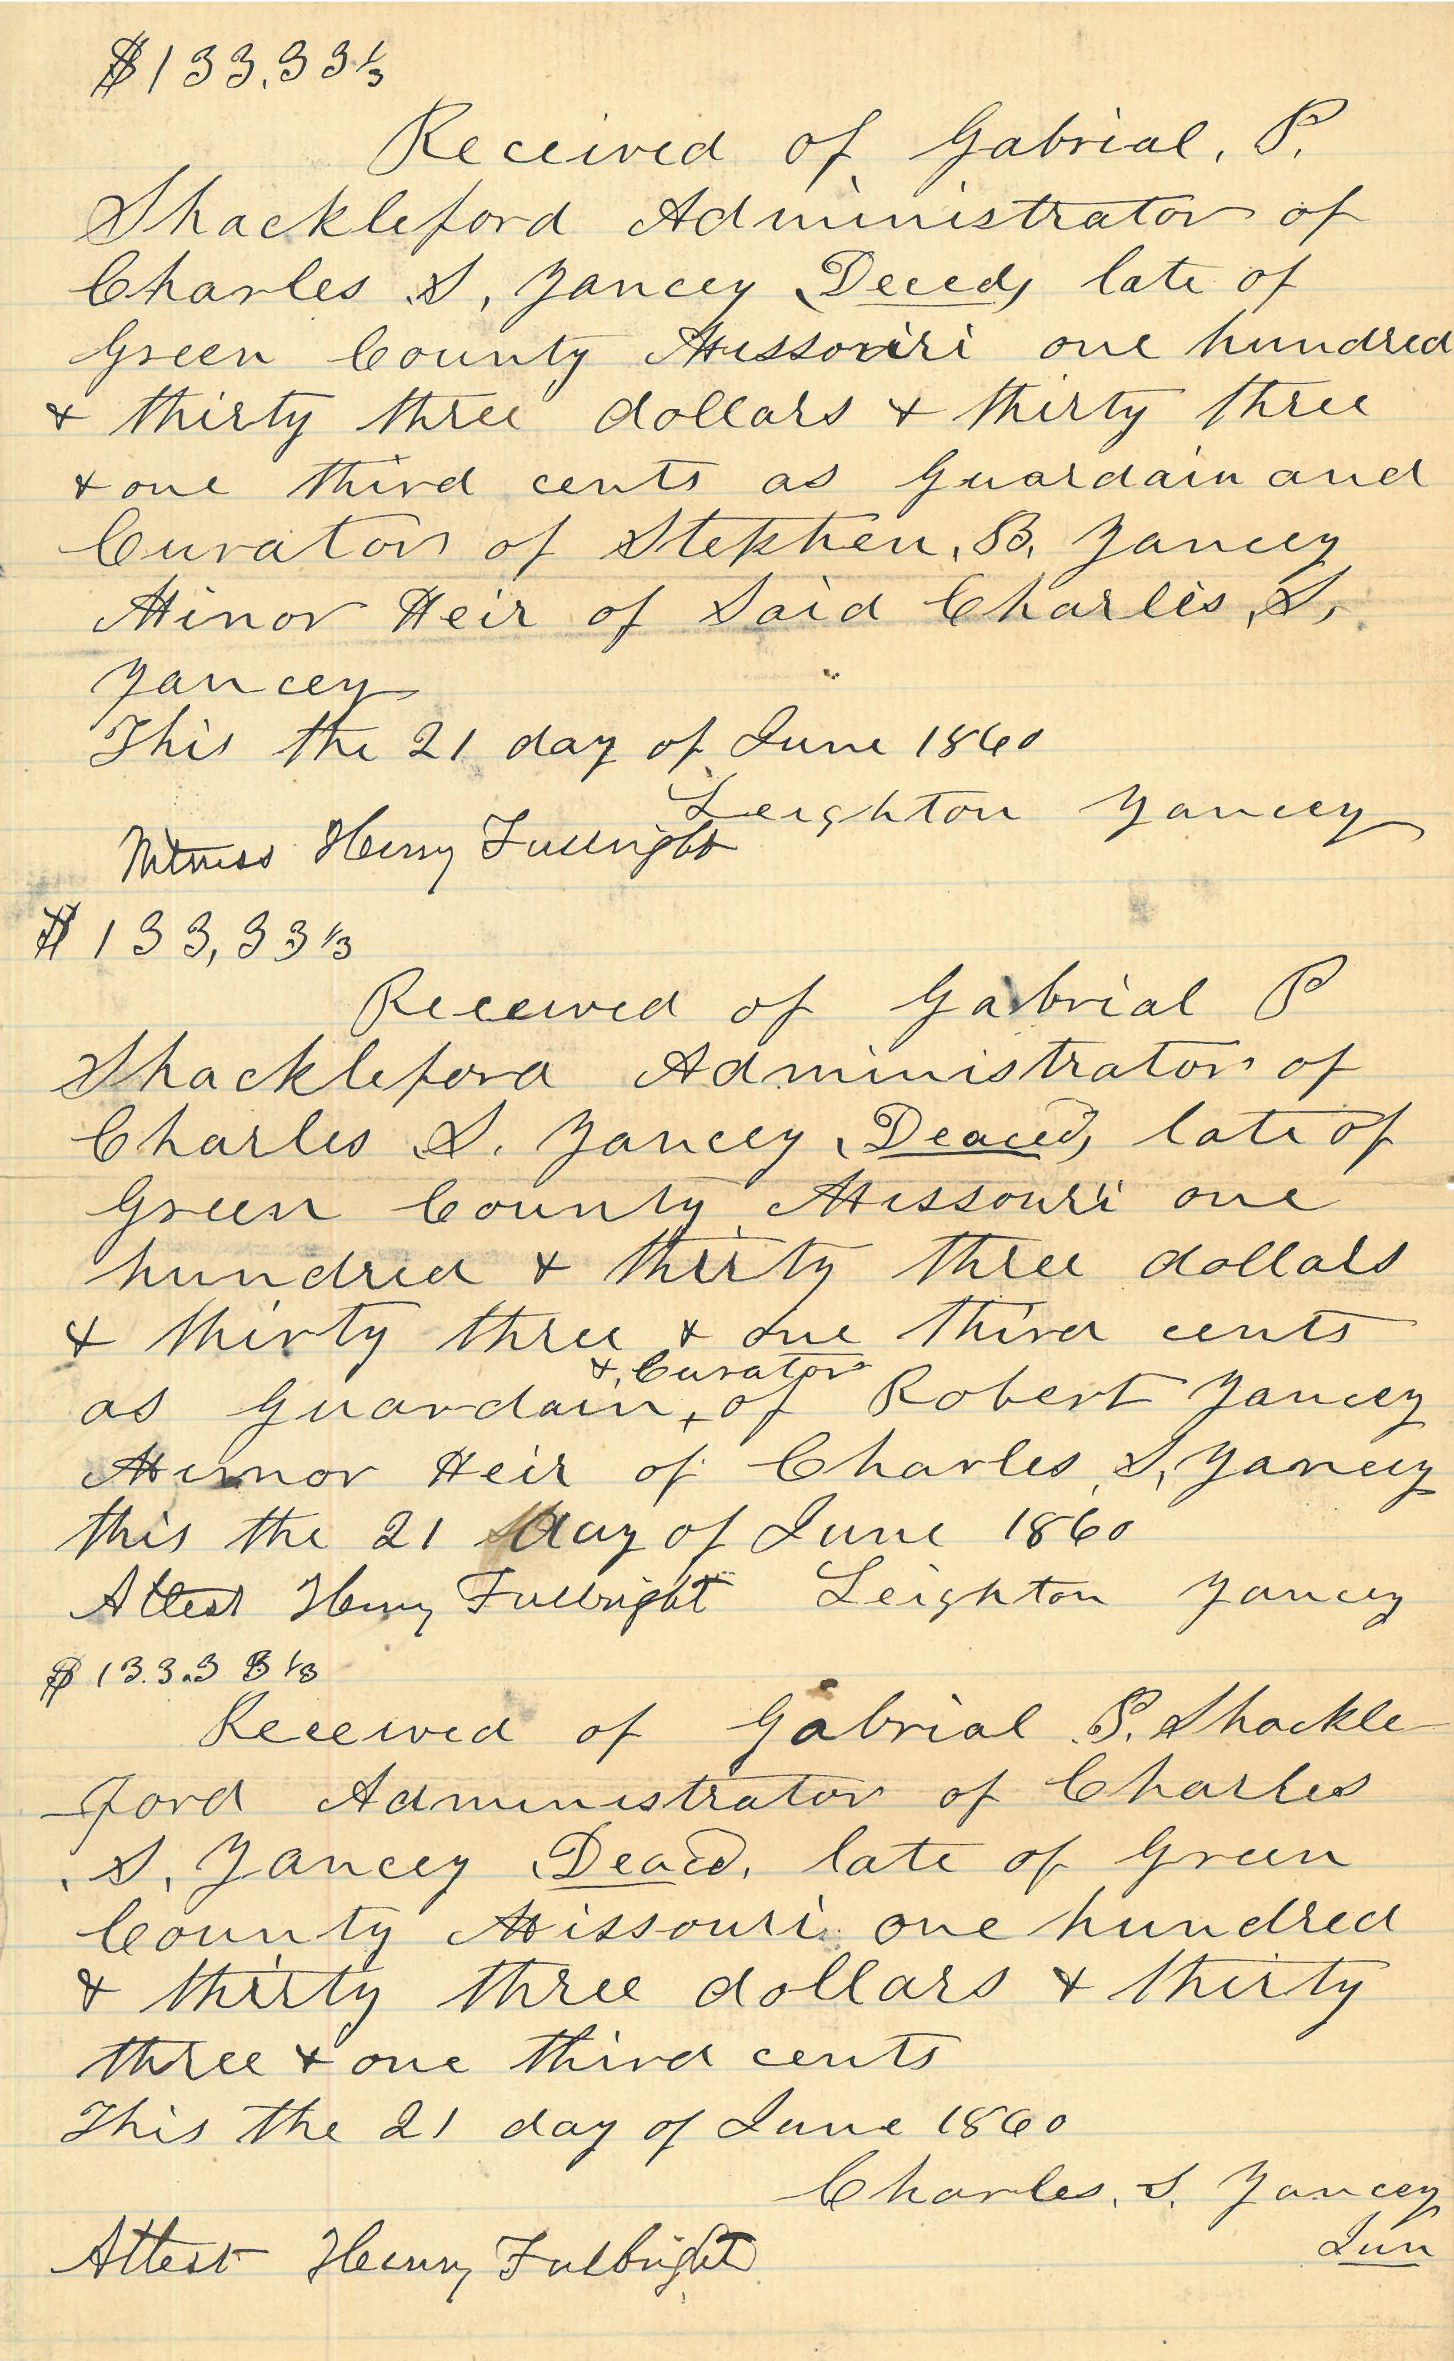 $133.33⅓
Received of Gabrial. P.
Shackleford Administrator of
Charles S, Yancey, Deceed, late of
Green County Missouri one hundred
& thirty three dollars & thirty three
& one third cents as Guardain and
Curator of Stephen. B. Yancey
Minor Heir of Said Charles, S,
Yancey
This the 21 day of June 1860
Leighton Yancey
Witness Henry Fulbright
$133,33⅓
Received of Gabrial P
Shackleford Administrator of
Charles S. Yancey, Deaced, late of
Green County Missouri one
hundred & thirty three dollars
& thirty three & one third cents
&, Curator
as Guardain, of Robert Yancey
Minor Heir of Charles, S, Yancey
this the 21 day of June 1860
Attest Henry Fulbright Leighton Yancey
$13.3.33⅓
Received of Gabrial P. Shackle
-ford Administrator of Charles
, S, Yancey, Deacd, late of Green
County Missouri one hundred
& thirty three dollars & thirty
three & one third cents
This the 21 day of June 1860
Charles, S, Yancey
Jun
Attest Henry Fulbright